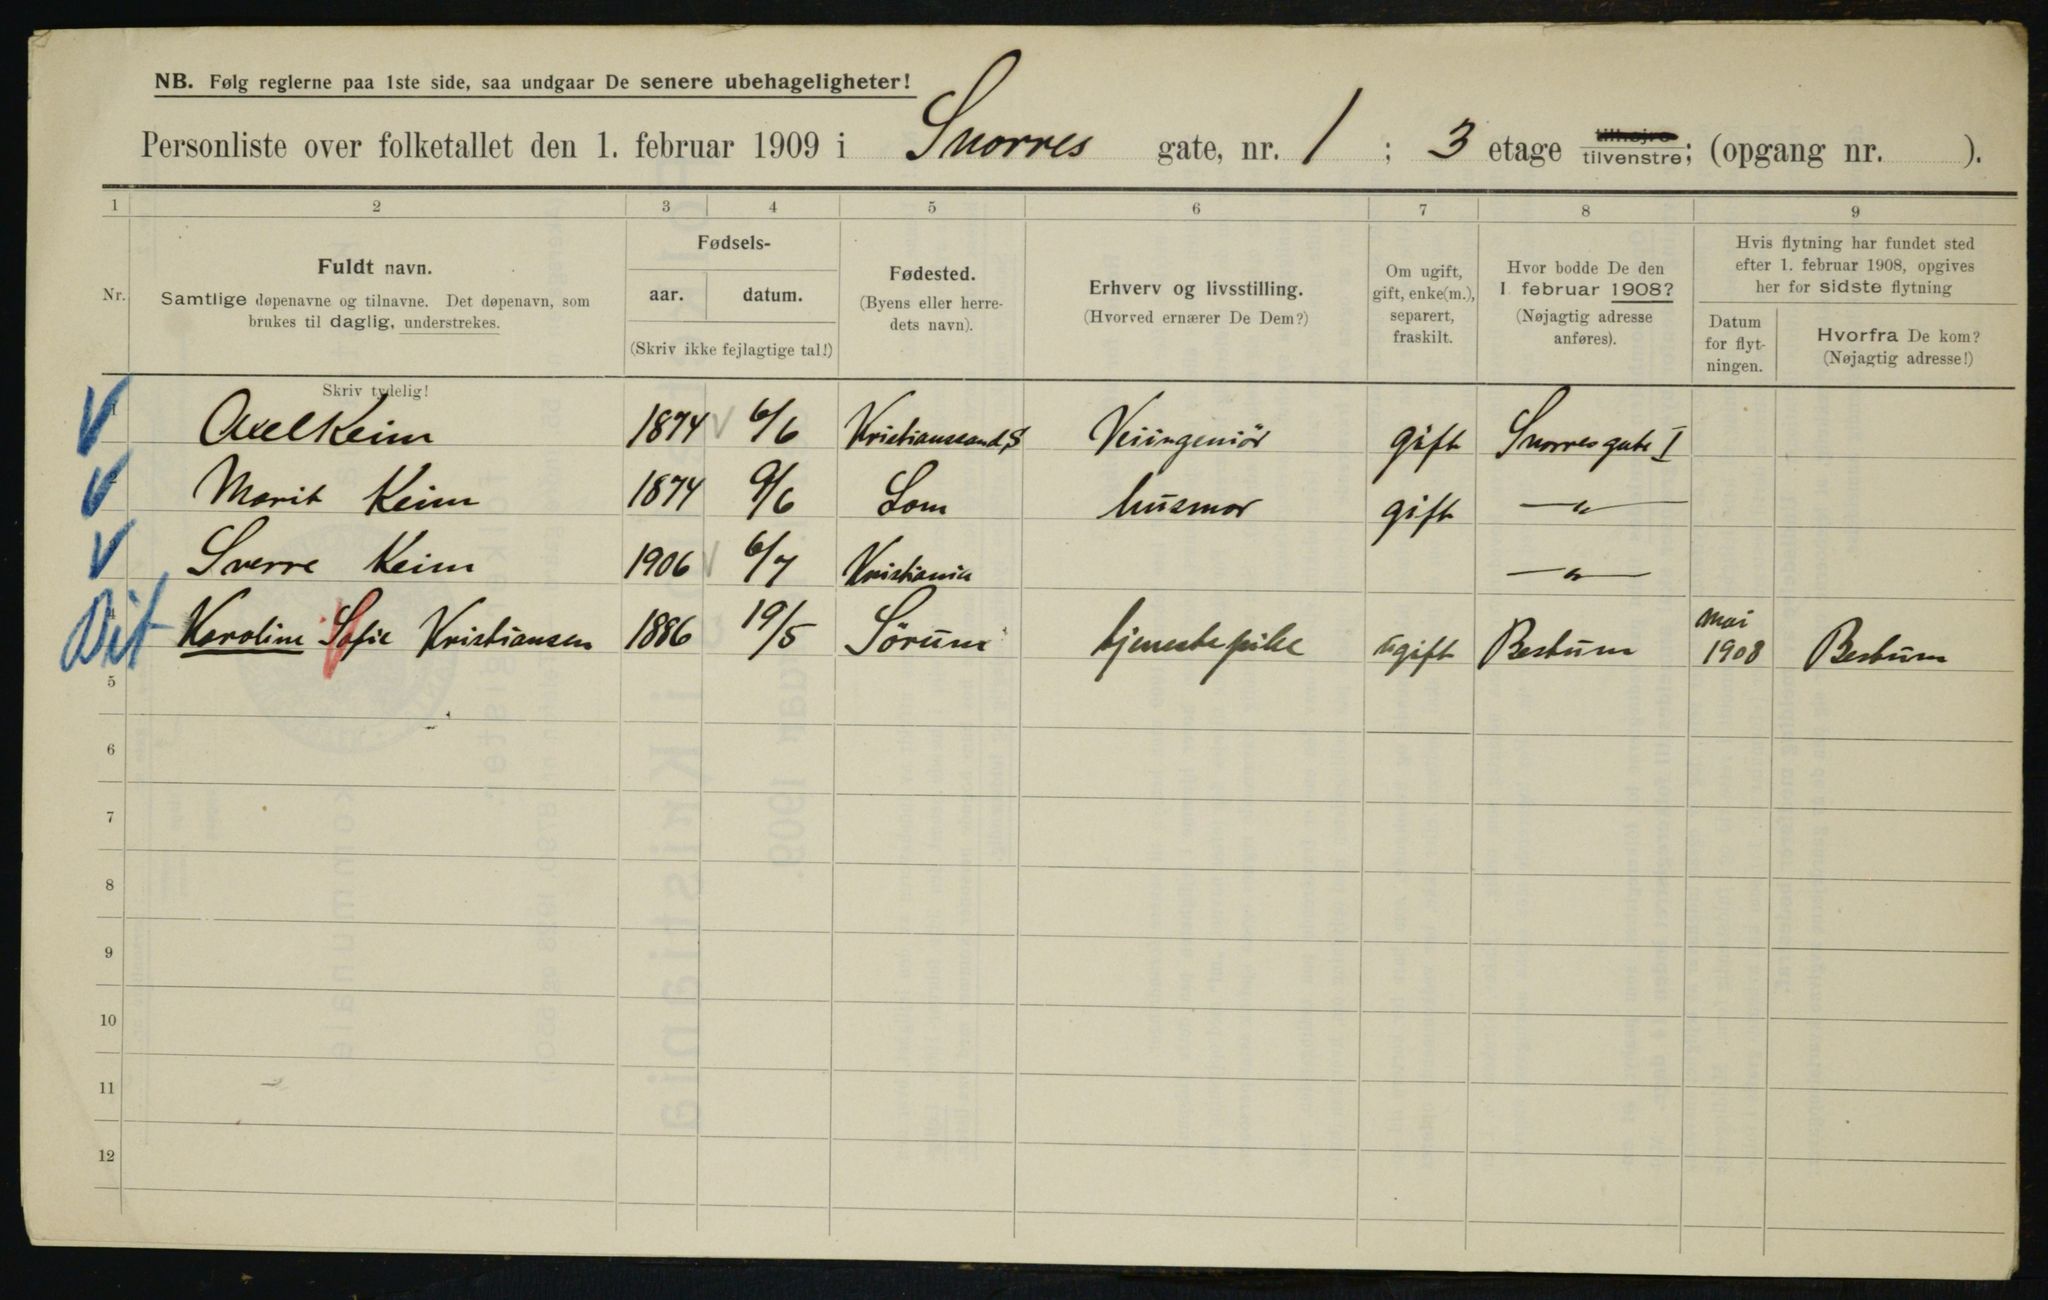 NB. Følg reglerne paa 1ste side, saa undgaar De senere ubehageligheter!
Personliste over folketallet den 1. februar 1909 i Snorres gate, nr. 1 ; 3 etage tilhøjre tilvenstre; (opgang nr. ).
1 2 3 4 5 6 7 8 9
Nr.
Fuldt navn.
Samtlige døpenavne og tilnavne. Det døpenavn, som
brukes til daglig, understrekes.
Skriv tydelig!
Fødsels-
aar. datum.
(Skriv ikke fejlagtige tal!)
Fødested.
(Byens eller herre-
dets navn).
Erhverv og livsstilling.
(Hvorved ernærer De Dem?)
Om ugift,
gift, enke(m.),
separert,
fraskilt.
Hvor bodde De den
1. februar 1908?
(Nøjagtig adresse
anføres).
Hvis flytning har fundet sted
efter 1. februar 1908, opgives
her for sidste flytning
Datum
for flyt-
ningen.
Hvorfra De kom?
(Nøjagtig adresse!)
V 1 Axel Keim 1874 6/6 Kristianssand S Veiingeniör gift Snorresgate I
V Marit Keim 1874 9/6 Lom husmor gift —„—
V Sverre Keim 1906 6/7 Kristiania —„—
Dit 4 Karoline Sofie Kristiansen 1886 19/5 Sörum tjenestepike ugift Bestum mai 1908 Bestum
5
6
7
8
9
10
11
12